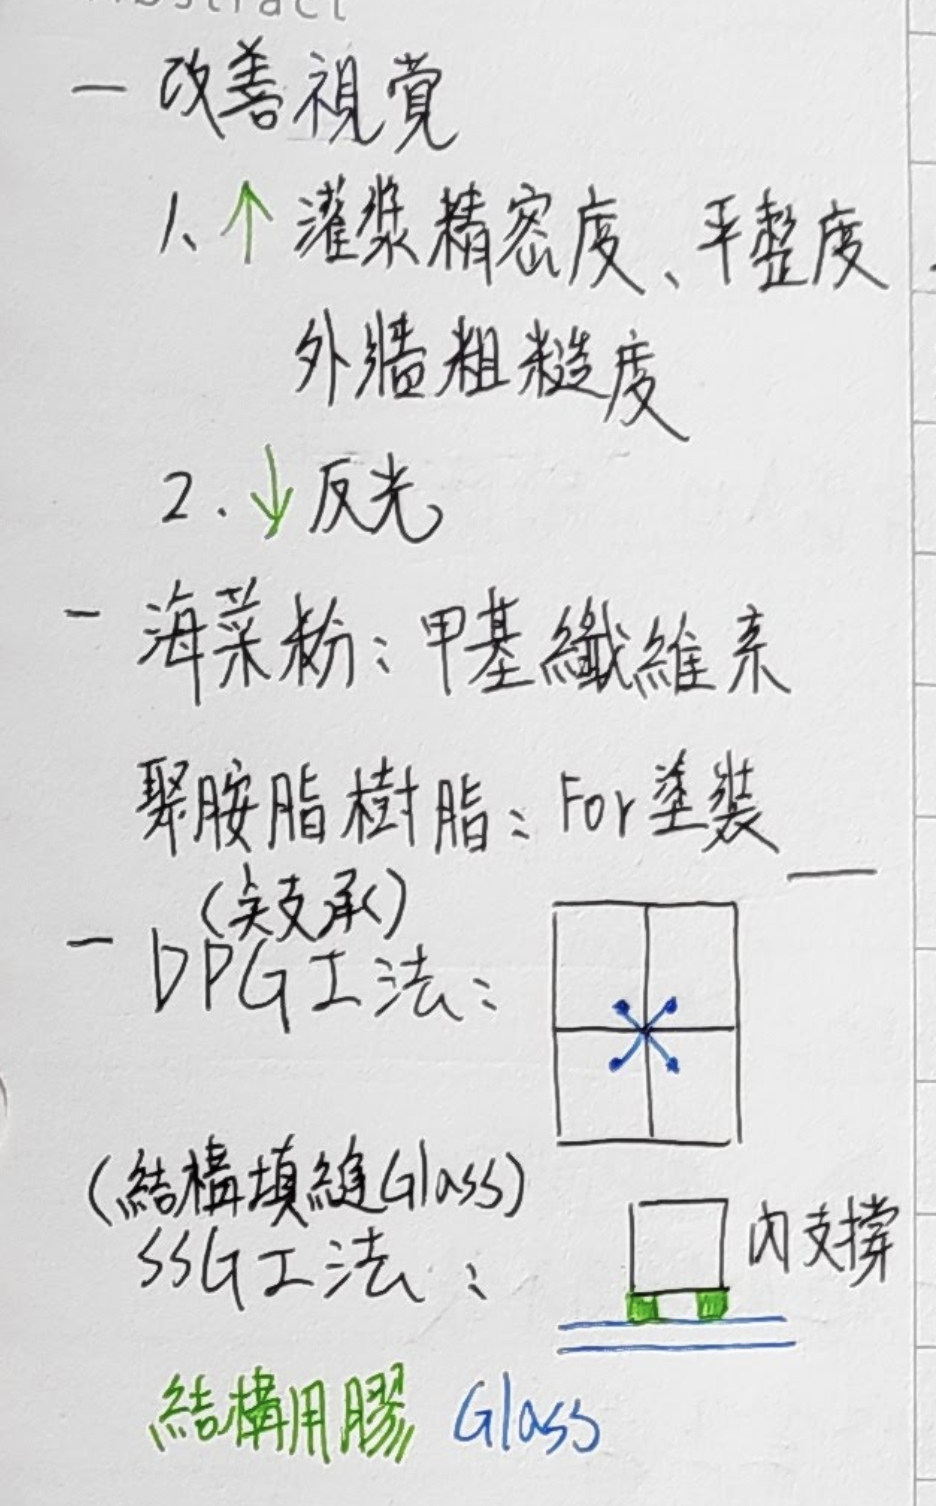 Abstract
- 改善視覺
1、↑灌漿精密度、平整度、
外牆粗糙度
2.↓反光
- 海菜粉:甲基纖維素
聚胺脂樹脂:For塗裝
(点支承)
- DPG工法:
(結構填縫Glass)
SSG工法:
內支撐
結構用膠 Glass